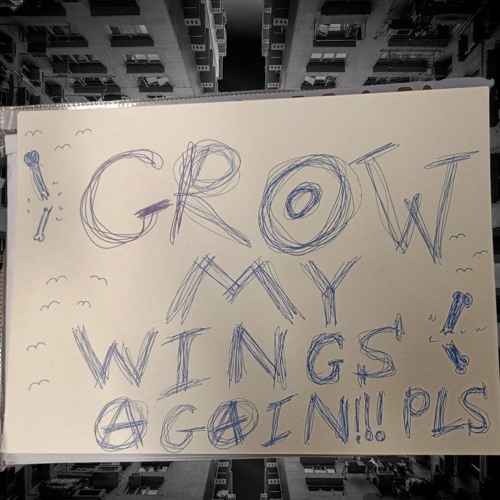 GROW
MY
WINGS
AGAIN!!! PLS